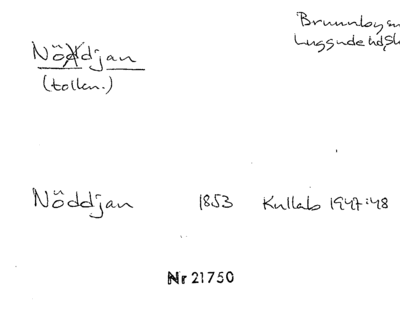 Brunnby sn
Luggude hd, Sk
Nöddjan
(tolkn.)
Nöddjan 1853 Kullab 1947:48
Nr 21750